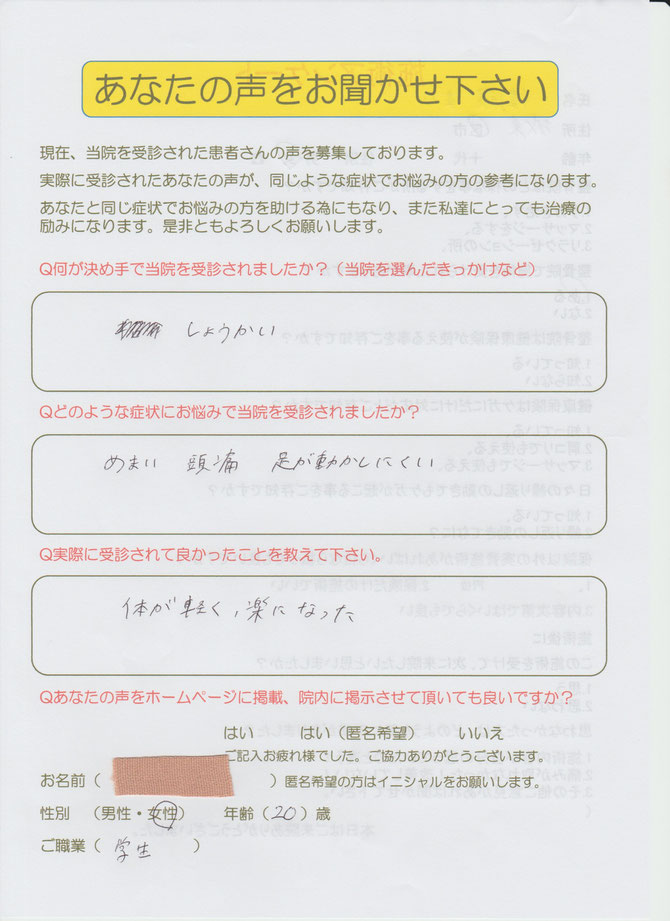 あなたの声をお聞かせ下さい
現在、当院を受診された患者さんの声を募集しております。
実際に受診されたあなたの声が、同じような症状でお悩みの方の参考になります。
あなたと同じ症状でお悩みの方を助ける為にもなり、また私達にとっても治療の
励みになります。是非ともよろしくお願いします。
Q何が決め手で当院を受診されましたか？（当院を選んだきっかけなど）
しょうかい
Qどのような症状にお悩みで当院を受診されましたか？
めまい 頭痛 足が動かしにくい
Q実際に受診されて良かったことを教えて下さい。
体が軽く,楽になった
Qあなたの声をホームページに掲載、院内に掲示させて頂いても良いですか？
はい はい（匿名希望） いいえ
ご記入お疲れ様でした。ご協力ありがとうございます。
お名前（ ）匿名希望の方はイニシャルをお願いします。
性別 （男性・女性） 年齢（20）歳
ご職業（ 学生 ）